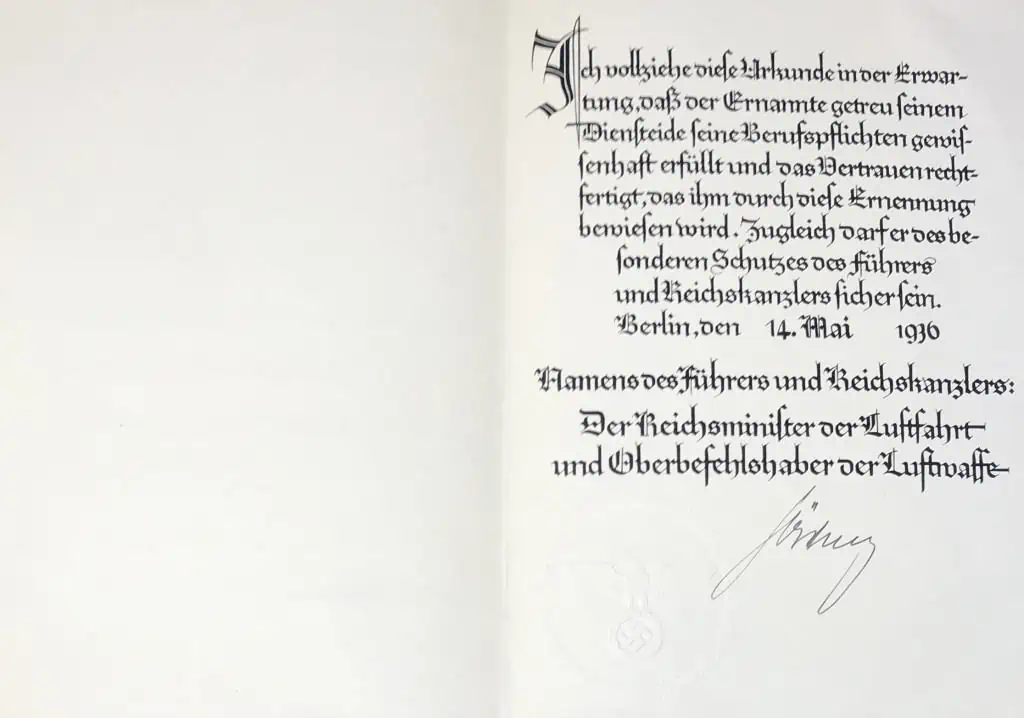 Ich vollziehe diese Urkunde in der Erwar-
tung, daß der Ernannte getreu seinem
Diensteide seine Berufspflichten gewis-
senhaft erfüllt und das Vertrauen recht-
fertigt, das ihm durch diese Ernennung
bewiesen wird. Zugleich darf er des be-
sonderen Schutzes des Führers
und Reichskanzlers sicher sein.
Berlin, den 14. Mai 1936
Namens des Führers und Reichskanzlers:
Der Reichsminister der Luftfahrt
und Oberbefehlshaber der Luftwaffe
Göring